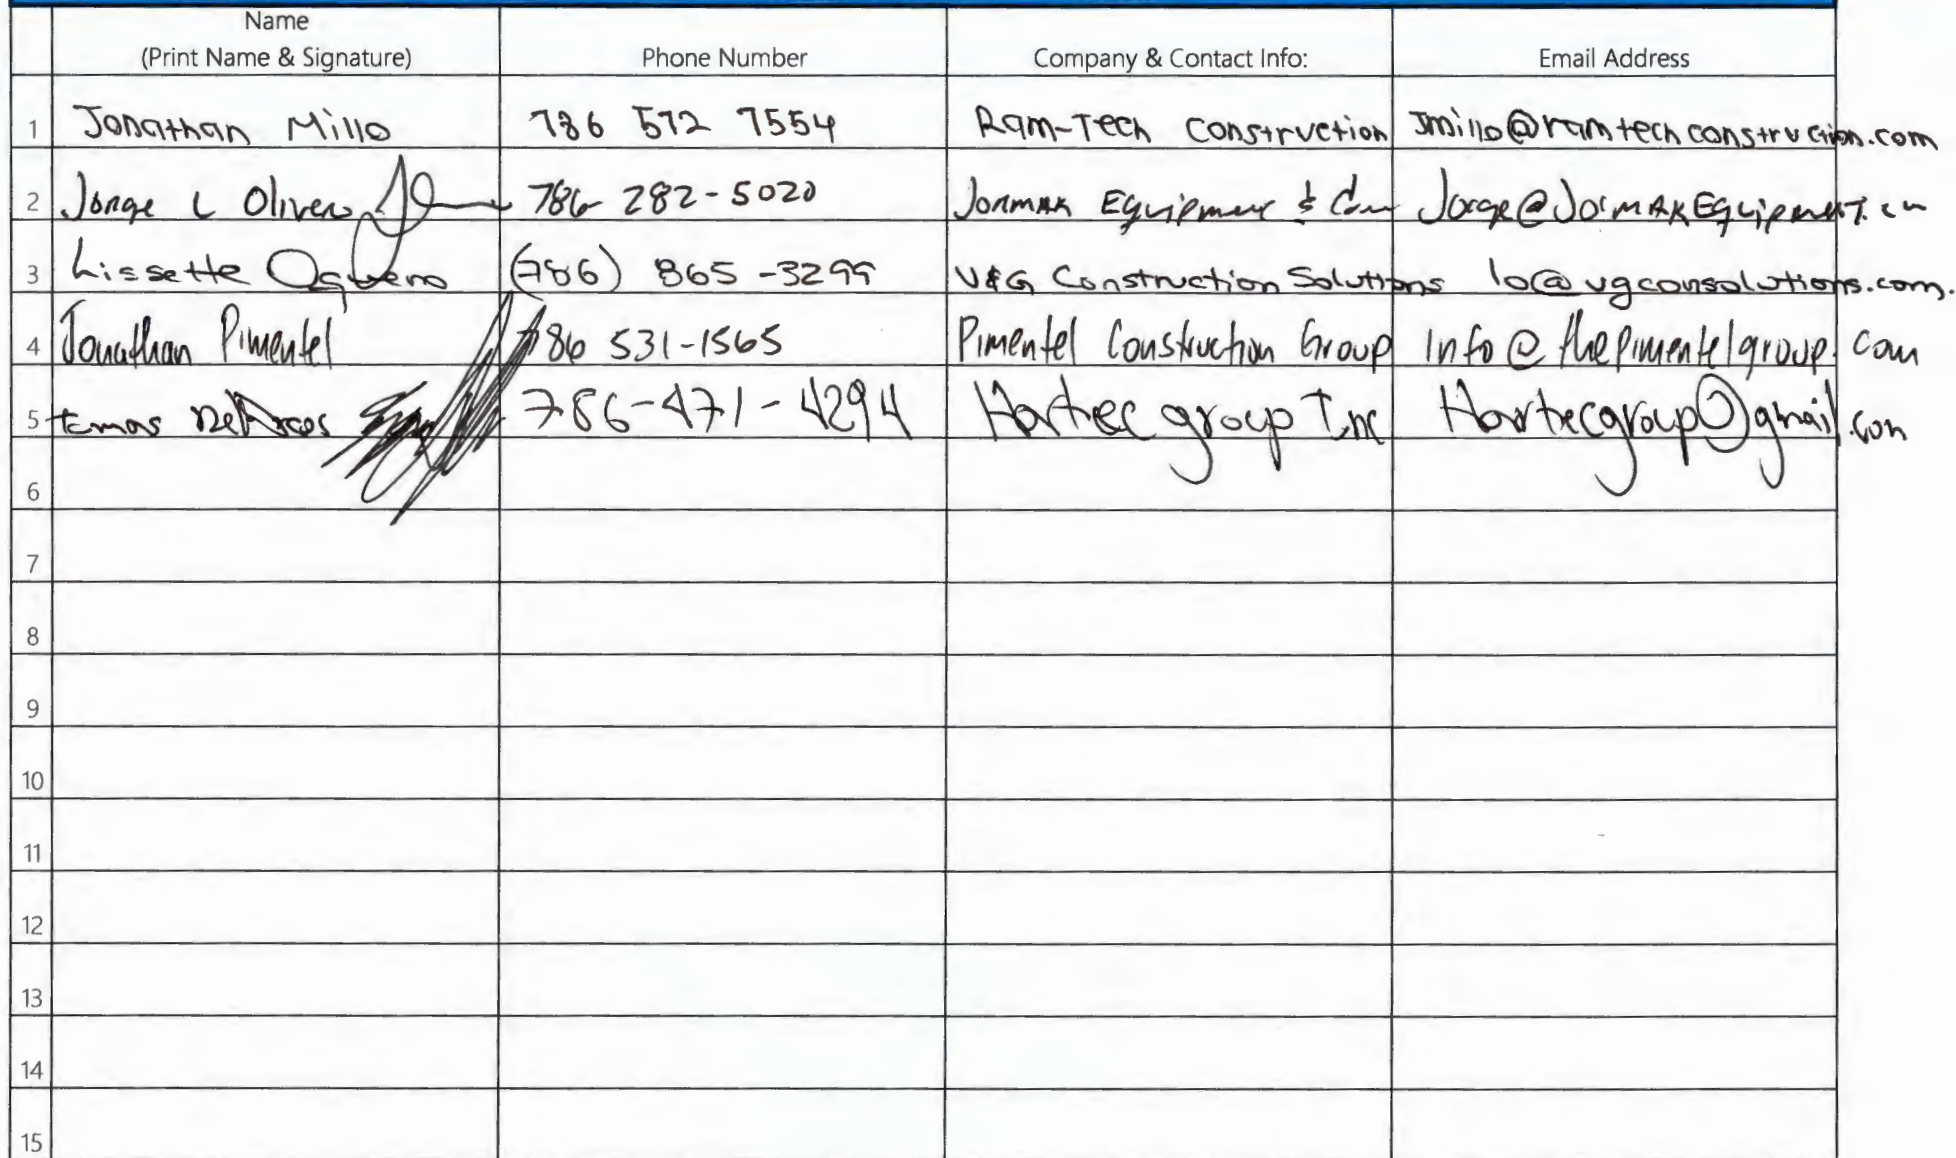 Name
(Print Name & Signature) Phone Number Company & Contact Info: Email Address
1 Jonathan Millo 786 572 7554 Ram-Tech Construction Jmillo@ramtechconstruction.com
2 Jorge L Olivero 786 282-5020 Jormak Equipment & Con Jorge@JormakEquipment.com
3 Lissette Oquero (786) 865-3299 V&G Construction Solutions lo@vgconsolutions.com.
4 Jonathan Pimentel 786 531-1565 Pimentel Construction Group Info@thepimentelgroup.com
5 786-471-4294 Hortec group Inc Hortecgroup@gmail.com
6
7
8
9
10
11
12
13
14
15